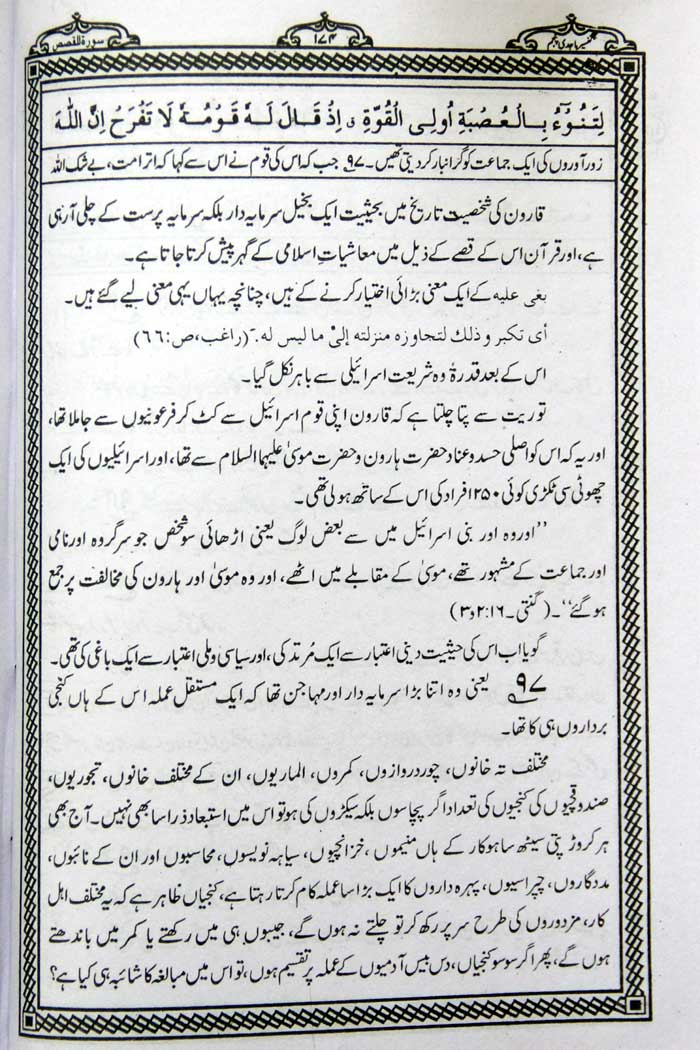 تفسیر ماجدی پنجم
۱۷۴
سورۃ القصص
لَتَنُوْٓءُ بِالْعُصْبَةِ اُولِی الْقُوَّةِ ۤ اِذْ قَالَ لَهٗ قَوْمُهٗ لَا تَفْرَحْ اِنَّ اللّٰهَ
زور آوروں کی ایک جماعت کو گرانبار کر دیتی تھیں۔ ۹۷ جب کہ اس کی قوم نے اس سے کہا کہ اترا مت، بے شک اللہ
قارون کی شخصیت تاریخ میں بحیثیت ایک بخیل سرمایہ دار بلکہ سرمایہ پرست کے چلی آرہی
ہے، اور قرآن اس کے قصے کے ذیل میں معاشیاتِ اسلامی کے گہر پیش کرتا جاتا ہے۔
بغی علیہ کے ایک معنی بڑائی اختیار کرنے کے ہیں، چنانچہ یہاں یہی معنی لیے گئے ہیں۔
أی تکبر و ذلك لتجاوزه منزلته إلیٰ ما لیس له۔ (راغب، ص:۶۶)
اس کے بعد قدرۃً وہ شریعت اسرائیلی سے باہر نکل گیا۔
توریت سے پتا چلتا ہے کہ قارون اپنی قوم اسرائیل سے کٹ کر فرعونیوں سے جاملا تھا،
اور یہ کہ اس کو اصلی حسد و عناد حضرت ہارون و حضرت موسیٰ علیہما السلام سے تھا، اور اسرائیلیوں کی ایک
چھوٹی سی ٹکڑی کوئی ۲۵۰ افراد کی اس کے ساتھ ہولی تھی۔
’’اور وہ اور بنی اسرائیل میں سے بعض لوگ یعنی اڑھائی سو شخص جو سرگروہ اور نامی
اور جماعت کے مشہور تھے، موسیٰ کے مقابلے میں اٹھے، اور وہ موسیٰ اور ہارون کی مخالفت پر جمع
ہو گئے‘‘۔ (گنتی۔ ۲:۱۶ و ۳)
گویا اب اس کی حیثیت دینی اعتبار سے ایک مُرتد کی، اور سیاسی و ملی اعتبار سے ایک باغی کی تھی۔
۹۷ یعنی وہ اتنا بڑا سرمایہ دار اور مہاجن تھا کہ ایک مستقل عملہ اس کے ہاں کنجی
برداروں ہی کا تھا۔
مختلف تہ خانوں، چور دروازوں، کمروں، الماریوں، ان کے مختلف خانوں، تجوریوں،
صندوقچیوں کی کنجیوں کی تعداد اگر پچاسوں بلکہ سیکڑوں کی ہو تو اس میں استبعاد ذرا سا بھی نہیں۔ آج بھی
ہر کروڑ پتی سیٹھ ساہوکار کے ہاں منیموں، خزانچیوں، سیاہہ نویسوں، محاسبوں اور ان کے نائبوں،
مددگاروں، چپراسیوں، پہرہ داروں کا ایک بڑا سا عملہ کام کرتا رہتا ہے، کنجیاں ظاہر ہے کہ یہ مختلف اہل
کار، مزدوروں کی طرح سر پر رکھ کر تو چلتے نہ ہوں گے، جیبوں ہی میں رکھتے یا کمر میں باندھتے
ہوں گے، پھر اگر سو سو کنجیاں، دس بیس آدمیوں کے عملہ پر تقسیم ہوں، تو اس میں مبالغہ کا شائبہ ہی کیا ہے؟